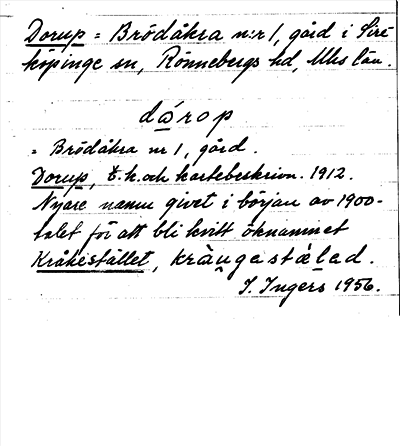 Dorup = Brödåkra n:r 1, gård i Sire-
köpinge sn, Rönnebergs hd, Mhs län.
dárop
= Brödåkra nr 1, gård.
Dorup, t. k. och kartebeskrivn. 1912.
Nyare namn givet i början av 1900-
talet för att bli kvitt öknamnet
Kråkestället, krà̰ŋgastǽlad.
I. Ingers 1956.